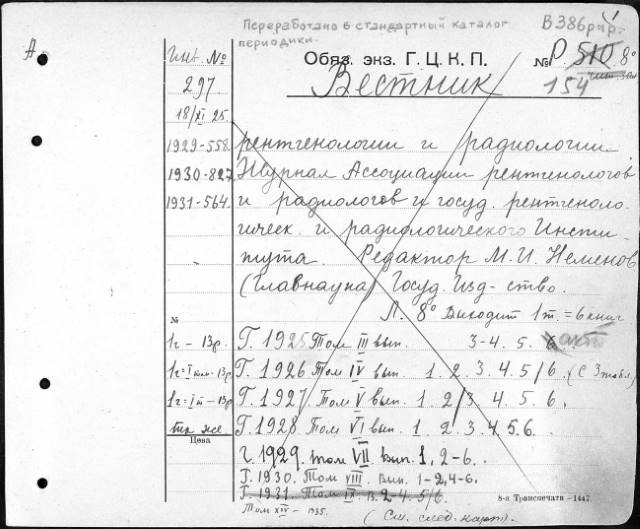 Переработано в стандартный каталог
периодики.
В386
А
Инв. №
Обяз. экз. Г. Ц. К. П.
№ Р 510 8°
154
297
Вестник
18/XI 25.
1929-558. рентгенологии и радиологии.
1930-827. Журнал Ассоциации рентгенологов
1931-564. и радиологов и госуд. рентгеноло-
гическ. и радиологического Инсти-
тута. Редактор М. И. Неменов
(Главнаука) Госуд. Изд-ство.
Л. 8° Выходит 1 т. = 6 книг
№
1г - 13р. Г. 1925 Том III вып. 3-4. 5. 6
Г. 1926 Том IV вып. 1. 2. 3. 4. 5/6. (С 3 табл.)
Г. 1927 Том V вып. 1. 2/3. 4. 5. 6.
так же Г. 1928 Том VI вып. 1. 2. 3. 4. 5. 6.
Цена
Г. 1929. том VII. Вып. 1, 2-6.
Г. 1930. Том VIII. Вып. 1-2, 4-6.
Г. 1931. Том IX. В. 2-4. 5/6.
8-я Транспечати – 1447.
Том XIV - 1935.
(См. след. карт.)